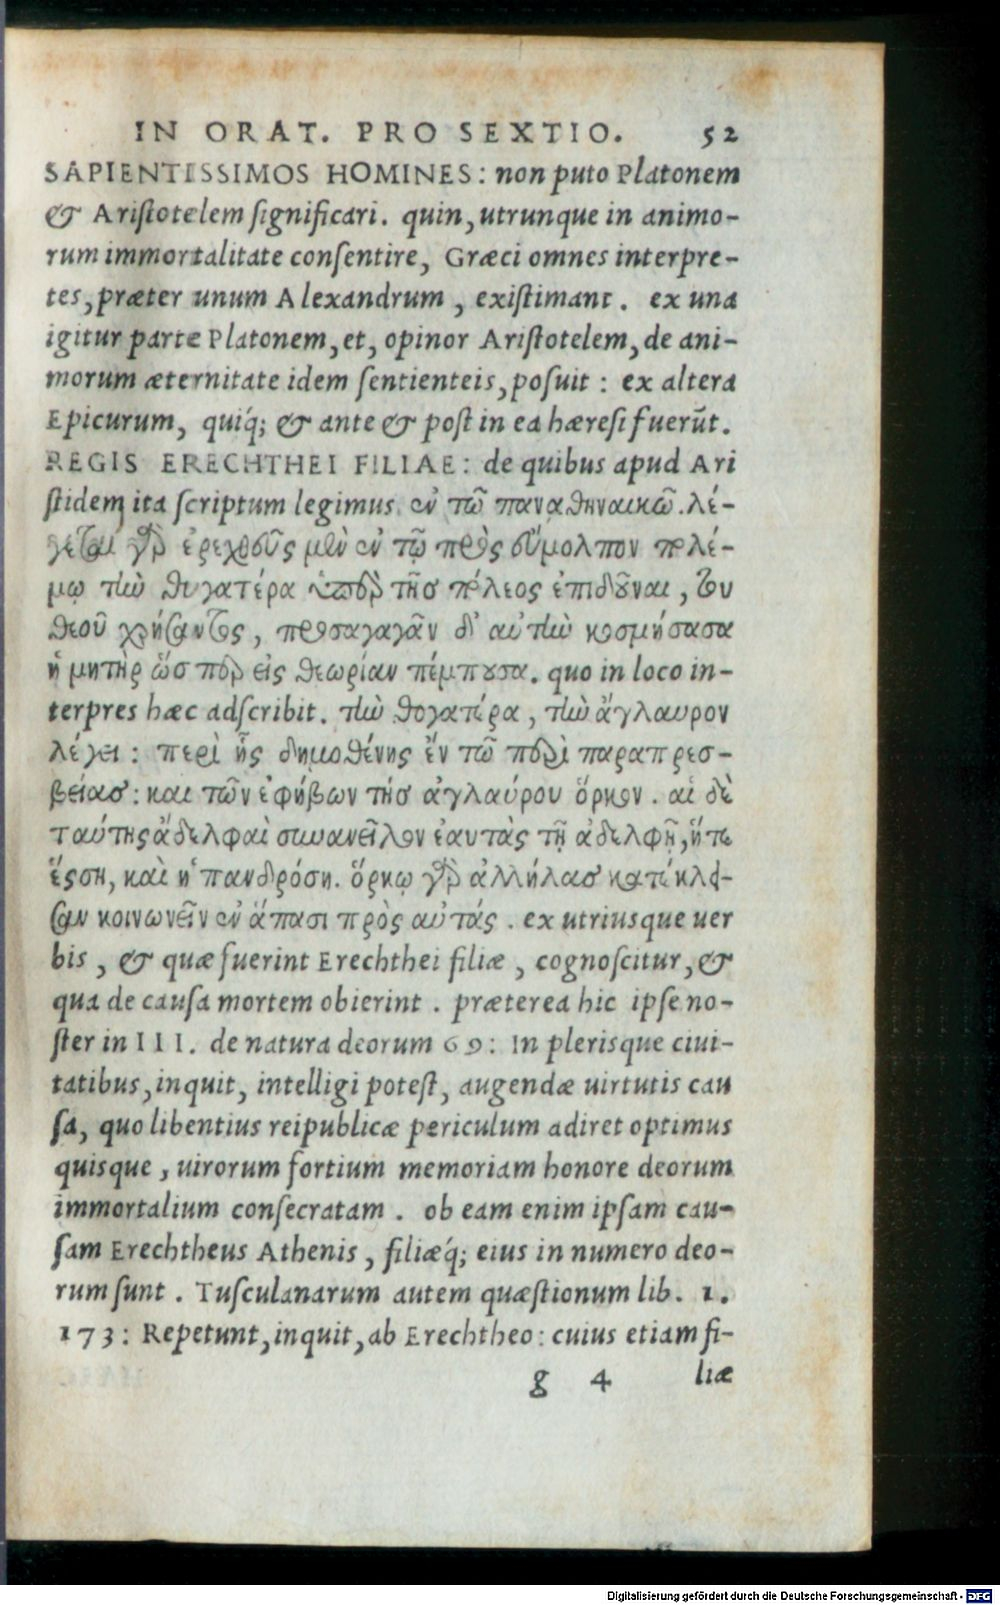 IN ORAT. PRO SEXTIO. 52
SAPIENTISSIMOS HOMINES: non puto Platonem
& Aristotelem significari. quin, utrunque in animo-
rum immortalitate consentire, Græci omnes interpre-
tes, præter unum Alexandrum, existimant. ex una
igitur parte Platonem, et, opinor Aristotelem, de ani-
morum æternitate idem sentienteis, posuit: ex altera
Epicurum, quiq́; & ante & post in ea hæresi fuerūt.
REGIS ERECHTHEI FILIAE: de quibus apud Ari
stidem ita scriptum legimus. ἐν τῶ παναθηναικῶ. λέ-
γεται γὰρ ἐρεχθεῦς μὲν ἐν τῷ πρὸς εὔμολπον πολέ-
μῳ τὴν θυγατέρα ὑπὲρ τῆσ πόλεος ἐπιδοῦναι, του
θεοῦ χρήσαντος, προσαγαγᾶν δ' αὐτὴν κοσμήσασα
ἡ μητὴρ ὥσπερ εἰς θεωρίαν πέμπουσα. quo in loco in-
terpres hæc adscribit. τὴν θυγατέρα, τὴν ἄγλαυρον
λέγει: περὶ ἧς δημοθένης ἔν τῶ περὶ παραπρεσ-
βείασ: και τῶν ἐφήβων τήσ ἀγλαύρου ὅρκον. αἱ δὲ
ταύτης ἀδελφαὶ συνανεῖλον ἑαυτὰς τῇ ἀδελφῇ, ἥτε
ἕρση, καὶ ἡ πανδρόση. ὅρκῳ γὰρ ἀλλήλασ κατέκλει-
σαν κοινωνεῖν ἐν ἅπασι πρὸς αὐτάς. ex utriusque uer
bis, & quæ fuerint Erechthei filiæ, cognoscitur, &
qua de causa mortem obierint. præterea hic ipse no-
ster in III. de natura deorum 69: In plerisque ciui-
tatibus, inquit, intelligi potest, augendæ uirtutis cau
sa, quo libentius reipublicæ periculum adiret optimus
quisque, uirorum fortium memoriam honore deorum
immortalium consecratam. ob eam enim ipsam cau-
sam Erechtheus Athenis, filiæq́; eius in numero deo-
rum sunt. Tusculanarum autem quæstionum lib. 1.
173: Repetunt, inquit, ab Erechtheo: cuius etiam fi-
g 4 liæ
Digitalisierung gefördert durch die Deutsche Forschungsgemeinschaft - DFG